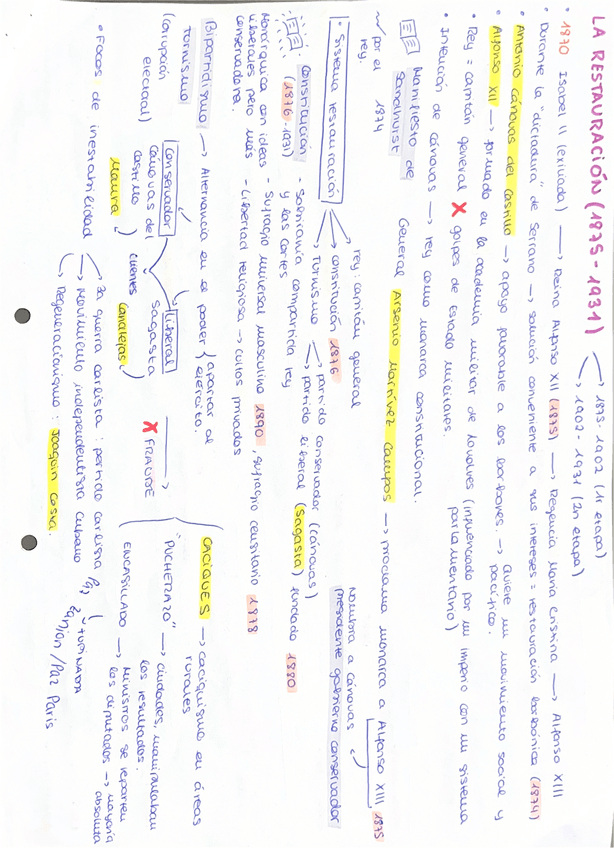 LA RESTAURACIÓN (1875-1931)
→ 1875-1902 (1ª etapa)
→ 1902-1931 (2ª etapa)
• 1870 Isabel II (exiliada) → Reina Alfonso XII (1875) → Regencia María Cristina → Alfonso XIII
• Durante la "dictadura" de Serrano → solución conveniente a sus intereses = restauración borbónica (1874)
• Antonio Cánovas del Castillo → apoyo favorable a los borbones. → Quiere un movimiento social y pacífico.
• Alfonso XII → formado en la academia militar de (influenciado por un imperio con un sistema parlamentario)
• Rey = capitán general ✗ golpes de estado militares.
• Intención de Cánovas → rey como monarca constitucional.
Manifiesto de Sandhurst
por el rey. 1874
General Arsenio Martínez Campos → proclama monarca a Alfonso XIII 1875
nombra a Cánovas presidente gobierno conservador
• Sistema restauración
→ rey: capitán general
→ constitución 1876
→ Turnismo
→ partido conservador (Cánovas)
→ partido liberal (Sagasta) fundado 1880
• Constitución (1876-1931)
- Soberanía compartida rey y las cortes
- Sufragio universal masculino 1890, sufragio censitario 1878
- Libertad religiosa → cultos privados
Monárquica con ideas liberales pero más conservadora.
Bipartidismo → Alternancia en el poder { apartar al ejército.
turnismo
(corrupción electoral)
Conservador
Cánovas del Castillo
Maura
Liberal
Sagasta
Canalejas
✗ FRAUDE
CACIQUES → caciquismo en áreas rurales
"PUCHERAZO" → ciudades, manipulaban los resultados.
ENCASILLADO → Ministros se reparten los diputados → mayoría absoluta
• Focos de inestabilidad
→ 3a guerra carlista: partido carlista
→ Movimiento independentista cubano
Zanjón / Paz París
→ Regeneracionismo: Joaquín Costa.